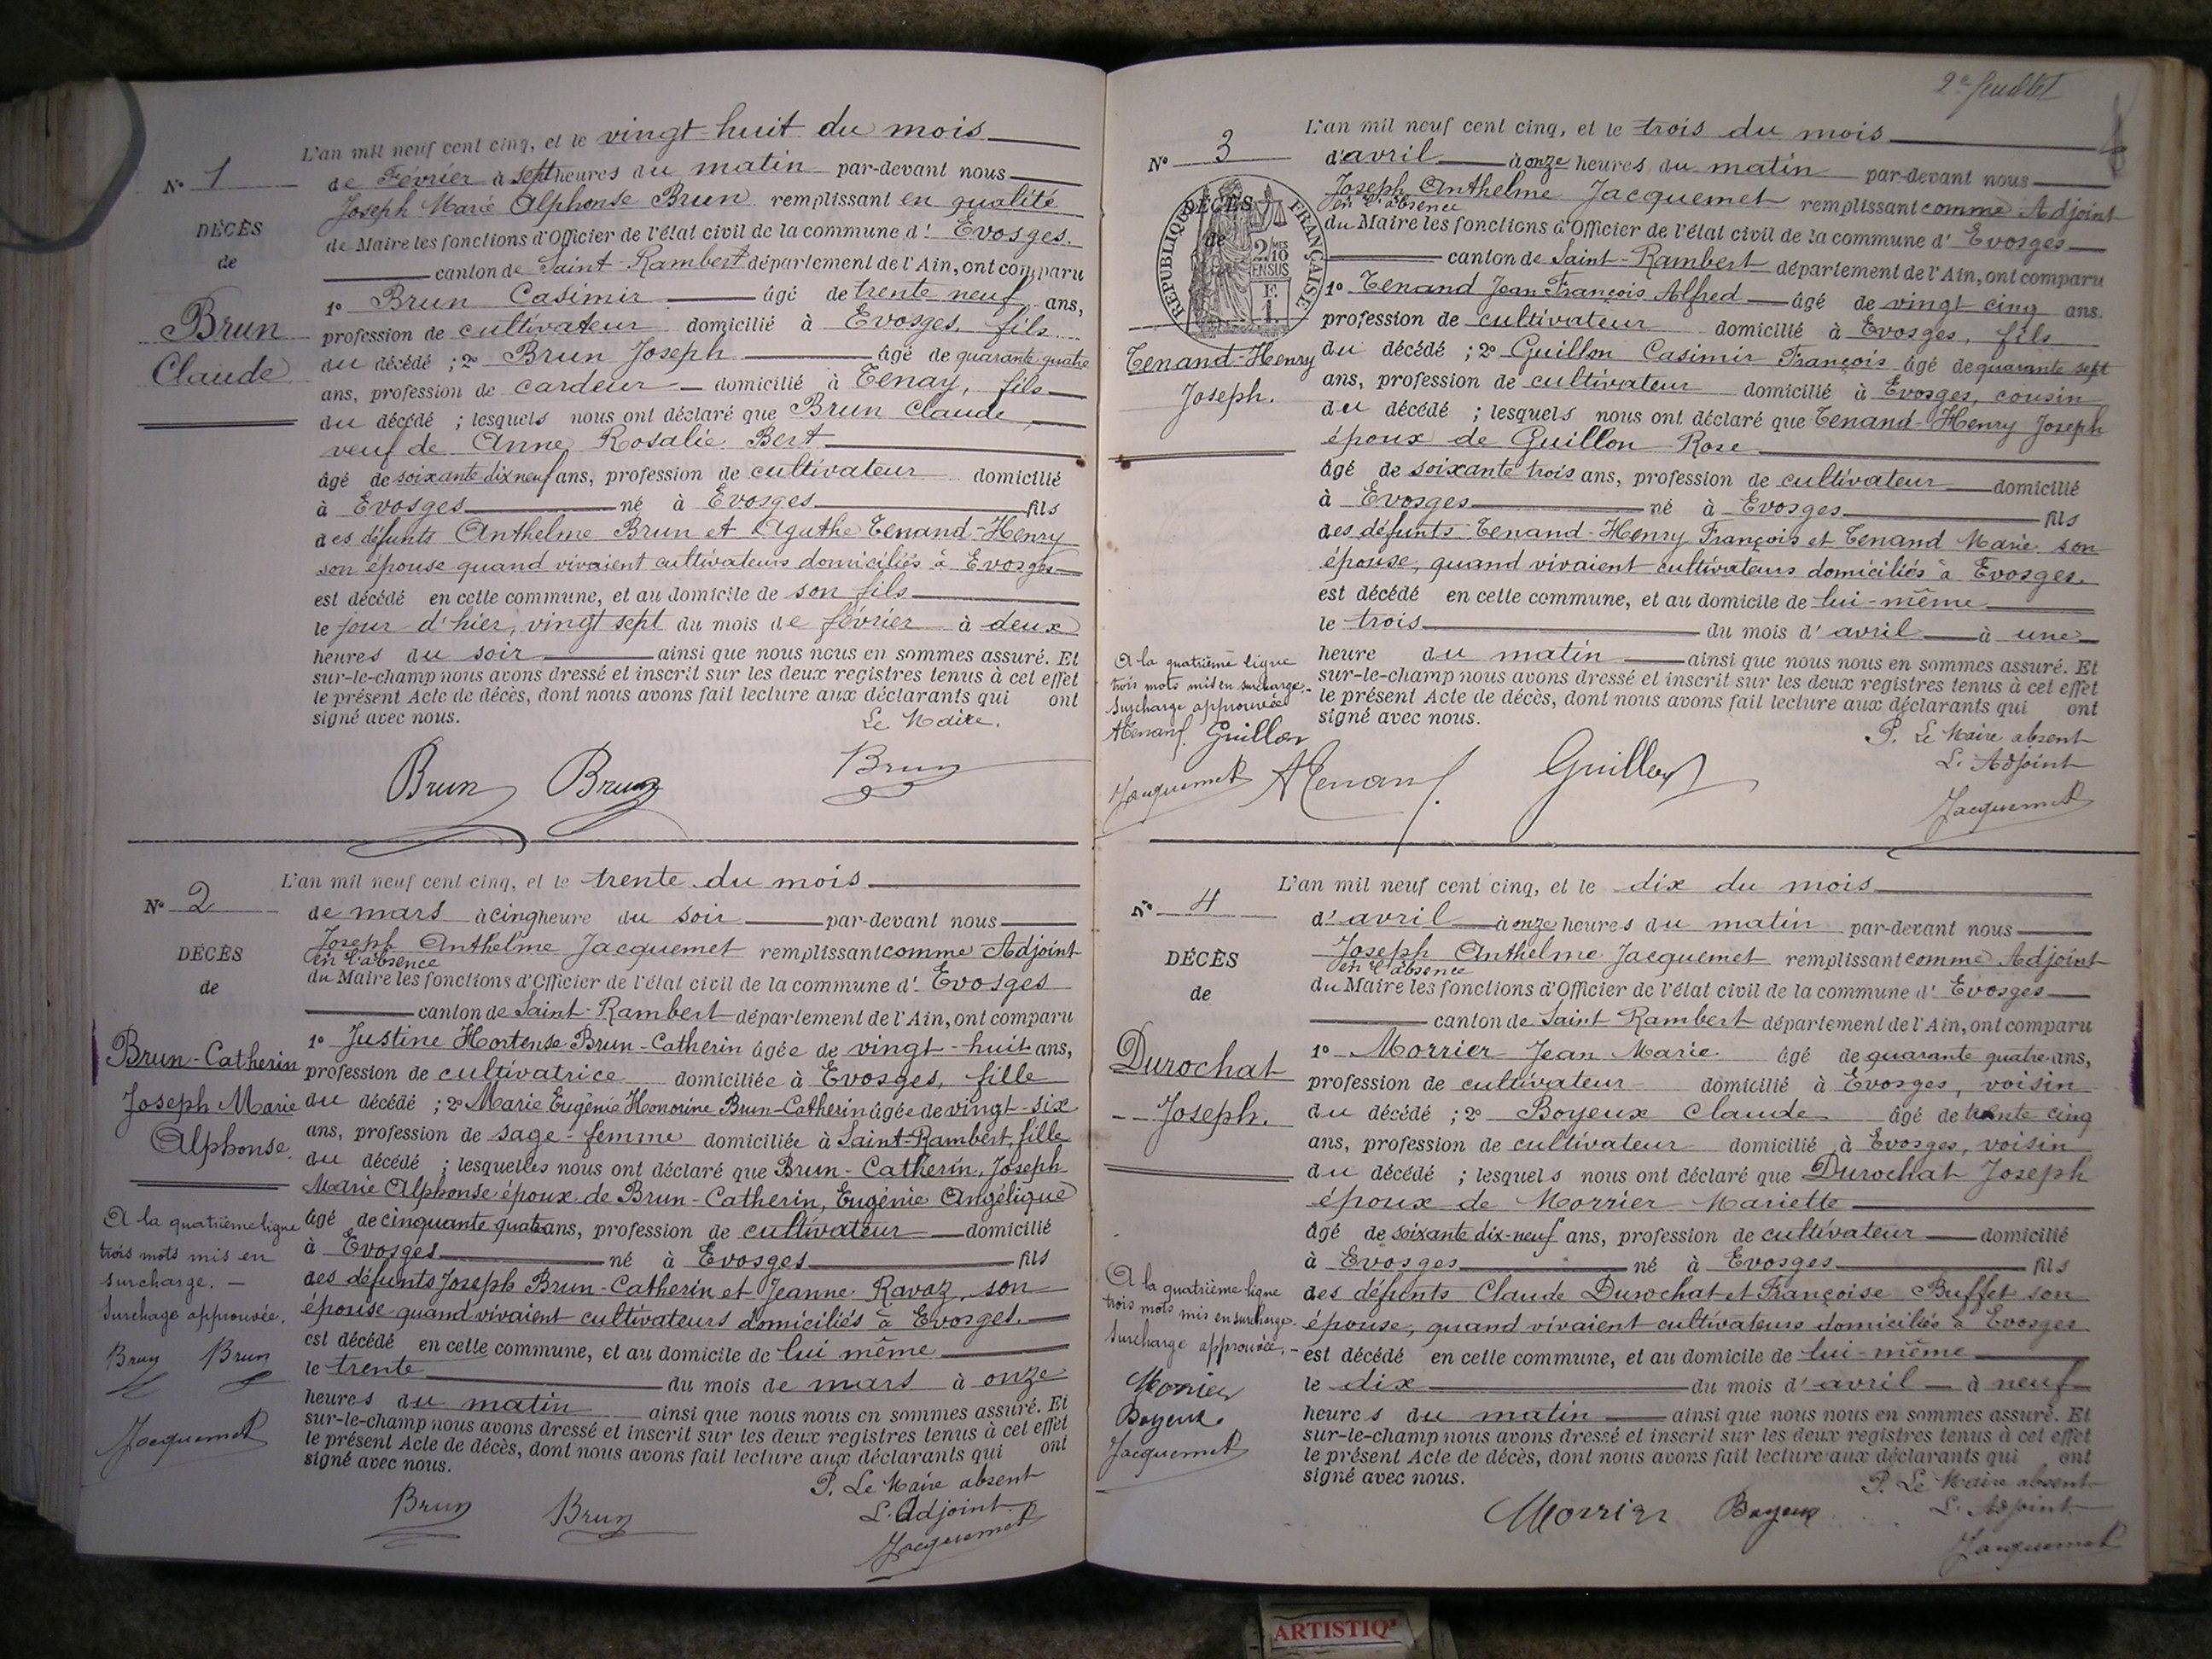 L'an mil neuf cent cinq, et le vingt-huit du mois
N° 1
de Février à sept heures du matin par-devant nous
Joseph Marie Alphonse Brun remplissant en qualité
DÉCÈS
de Maire les fonctions d'Officier de l'état civil de la commune d' Evosges.
de
canton de Saint-Rambert département de l'Ain, ont comparu
1° Brun Casimir âgé de trente neuf ans,
Brun
profession de cultivateur domicilié à Evosges, fils
du décédé ; 2° Brun Joseph âgé de quarante quatre
Claude
ans, profession de cardeur domicilié à Tenay, fils
du décédé ; lesquels nous ont déclaré que Brun Claude,
veuf de Anne Rosalie Bert
âgé de soixante dix neuf ans, profession de cultivateur domicilié
à Evosges né à Evosges fils
des défunts Anthelme Brun et Agathe Tenand-Henry
son épouse quand vivaient cultivateurs domiciliés à Evosges
est décédé en cette commune, et au domicile de son fils
le jour d'hier, vingt sept du mois de février à deux
heures du soir ainsi que nous nous en sommes assuré. Et
sur-le-champ nous avons dressé et inscrit sur les deux registres tenus à cet effet
le présent Acte de décès, dont nous avons fait lecture aux déclarants qui ont
signé avec nous.
Le Maire.
Brun Brun Brun
L'an mil neuf cent cinq, et le trente du mois
N° 2
de mars à cinq heure du soir par-devant nous
Joseph Anthelme Jacquemet remplissant comme Adjoint
en l'absence
DÉCÈS
du Maire les fonctions d'Officier de l'état civil de la commune d' Evosges
de
canton de Saint-Rambert département de l'Ain, ont comparu
1° Justine Hortense Brun-Catherin âgée de vingt-huit ans,
Brun-Catherin
profession de cultivatrice domiciliée à Evosges, fille
Joseph Marie
du décédé ; 2° Marie Eugénie Honorine Brun-Catherin âgée de vingt-six
Alphonse.
ans, profession de sage-femme domiciliée à Saint-Rambert, fille
du décédé ; lesquelles nous ont déclaré que Brun-Catherin, Joseph
Marie Alphonse époux de Brun-Catherin, Eugénie Angélique
âgé de cinquante quatre ans, profession de cultivateur domicilié
à Evosges né à Evosges fils
des défunts Joseph Brun-Catherin et Jeanne Ravaz, son
épouse quand vivaient cultivateurs domiciliés à Evosges.
est décédé en cette commune, et au domicile de lui même
le trente du mois de mars à onze
heures du matin ainsi que nous nous en sommes assuré. Et
sur-le-champ nous avons dressé et inscrit sur les deux registres tenus à cet effet
le présent Acte de décès, dont nous avons fait lecture aux déclarants qui ont
signé avec nous.
A la quatrième ligne
trois mots mis en
surcharge. —
Surchage approuvée.
Brun Brun
Jacquemet
P. Le Maire absent
L'Adjoint
Brun Brun
Jacquemet
2e feuillet
L'an mil neuf cent cinq, et le trois du mois
N° 3
d'avril à onze heures du matin par-devant nous
Joseph Anthelme Jacquemet remplissant comme Adjoint
en l'absence
DÉCÈS
du Maire les fonctions d'Officier de l'état civil de la commune d' Evosges
de
RÉPUBLIQUE FRANÇAISE
2/10 MES
EN SUS
F.
1
canton de Saint-Rambert département de l'Ain, ont comparu
1° Tenand Jean François Alfred âgé de vingt cinq ans.
profession de cultivateur domicilié à Evosges, fils
Tenand-Henry
du décédé ; 2° Guillon Casimir François âgé de quarante sept
Joseph.
ans, profession de cultivateur domicilié à Evosges, cousin
du décédé ; lesquels nous ont déclaré que Tenand-Henry Joseph
époux de Guillon Rose
âgé de soixante trois ans, profession de cultivateur domicilié
à Evosges né à Evosges fils
des défunts Tenand-Henry François et Tenand Marie son
épouse, quand vivaient cultivateurs domiciliés à Evosges.
est décédé en cette commune, et au domicile de lui-même
le trois du mois d'avril à une
heure du matin ainsi que nous nous en sommes assuré. Et
sur-le-champ nous avons dressé et inscrit sur les deux registres tenus à cet effet
le présent Acte de décès, dont nous avons fait lecture aux déclarants qui ont
signé avec nous.
A la quatrième ligne
trois mots mis en surcharge.
Surcharge approuvée
ATenand. Guillon
Jacquemet
P. Le Maire absent
L'Adjoint
ATenand. Guillon
Jacquemet
L'an mil neuf cent cinq, et le dix du mois
N° 4
d'avril à onze heures du matin par-devant nous
Joseph Anthelme Jacquemet remplissant comme Adjoint
en l'absence
DÉCÈS
du Maire les fonctions d'Officier de l'état civil de la commune d' Evosges
de
canton de Saint Rambert département de l'Ain, ont comparu
1° Morrier Jean Marie âgé de quarante quatre ans,
Durochat
profession de cultivateur domicilié à Evosges, voisin
Joseph.
du décédé ; 2° Boyeux Claude âgé de trente cinq
ans, profession de cultivateur domicilié à Evosges, voisin
du décédé ; lesquels nous ont déclaré que Durochat Joseph
époux de Morrier Mariette
âgé de soixante dix-neuf ans, profession de cultivateur domicilié
à Evosges né à Evosges fils
des défunts Claude Durochat et Françoise Buffet son
épouse, quand vivaient cultivateurs domiciliés à Evosges
est décédé en cette commune, et au domicile de lui-même
le dix du mois d'avril à neuf
heures du matin ainsi que nous nous en sommes assuré. Et
sur-le-champ nous avons dressé et inscrit sur les deux registres tenus à cet effet
le présent Acte de décès, dont nous avons fait lecture aux déclarants qui ont
signé avec nous.
A la quatrième ligne
trois mots mis en surcharge.
Surcharge approuvée. —
Morrier
Boyeux
Jacquemet
P. Le Maire absent
L'Adjoint
Morrier Boyeux
Jacquemet
ARTISTIQ